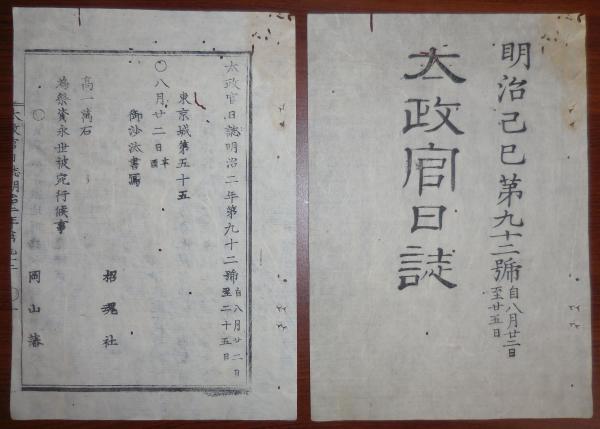 明治己巳第九十二號 自八月廿二日至廿五日
太政官日誌
太政官日誌明治二年第九十二號 自八月廿二日至二十五日
東京城第五十五
○八月廿二日
御沙汰書寫
招魂社
高一萬石
為祭資永世被宛行候事
○
岡山藩
太政官日誌明治二年第九十二